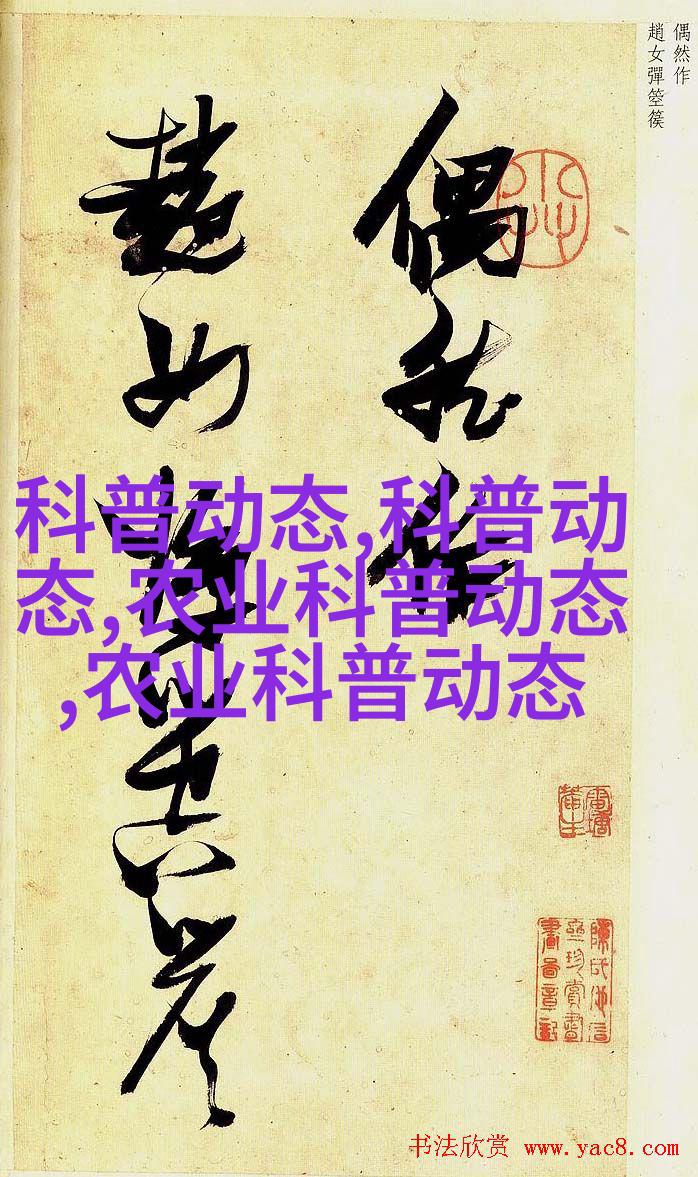 偶然作
趙女彈箜篌
偶然作
趙女彈箜篌
科普动态,科普动
态,农业科普动态
,农业科普动态
书法欣赏 www.yac8.com